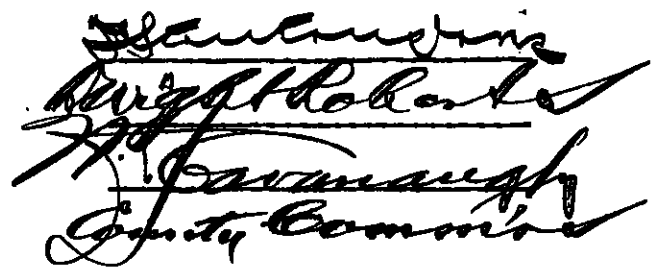 Dwight Roberts
W. J. Cavanaugh
County Comm'rs